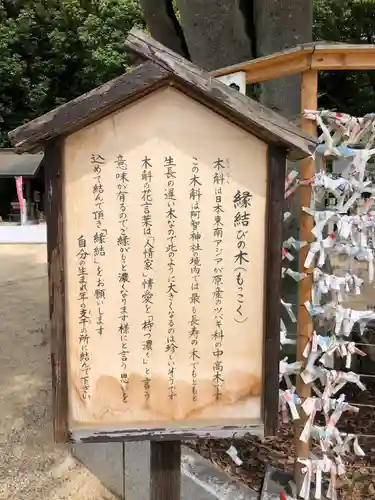 縁結びの木(もっこく)
本斛は日本東南アジア原産のツバキ科の中高木です
この木斛は阿智神社の境内では最も長寿の木でもともと
生長の遅い木なので此のように大きくなるのは珍しい方です
木斛の花言葉は「人情家」情愛を「持つ濃く」と言う
意味が有るのでご縁がもっと濃くなります様にと言う思いを
込めて結んで頂き「縁結」をお願いします
自分の生まれ年の支干の所に結んで下さい